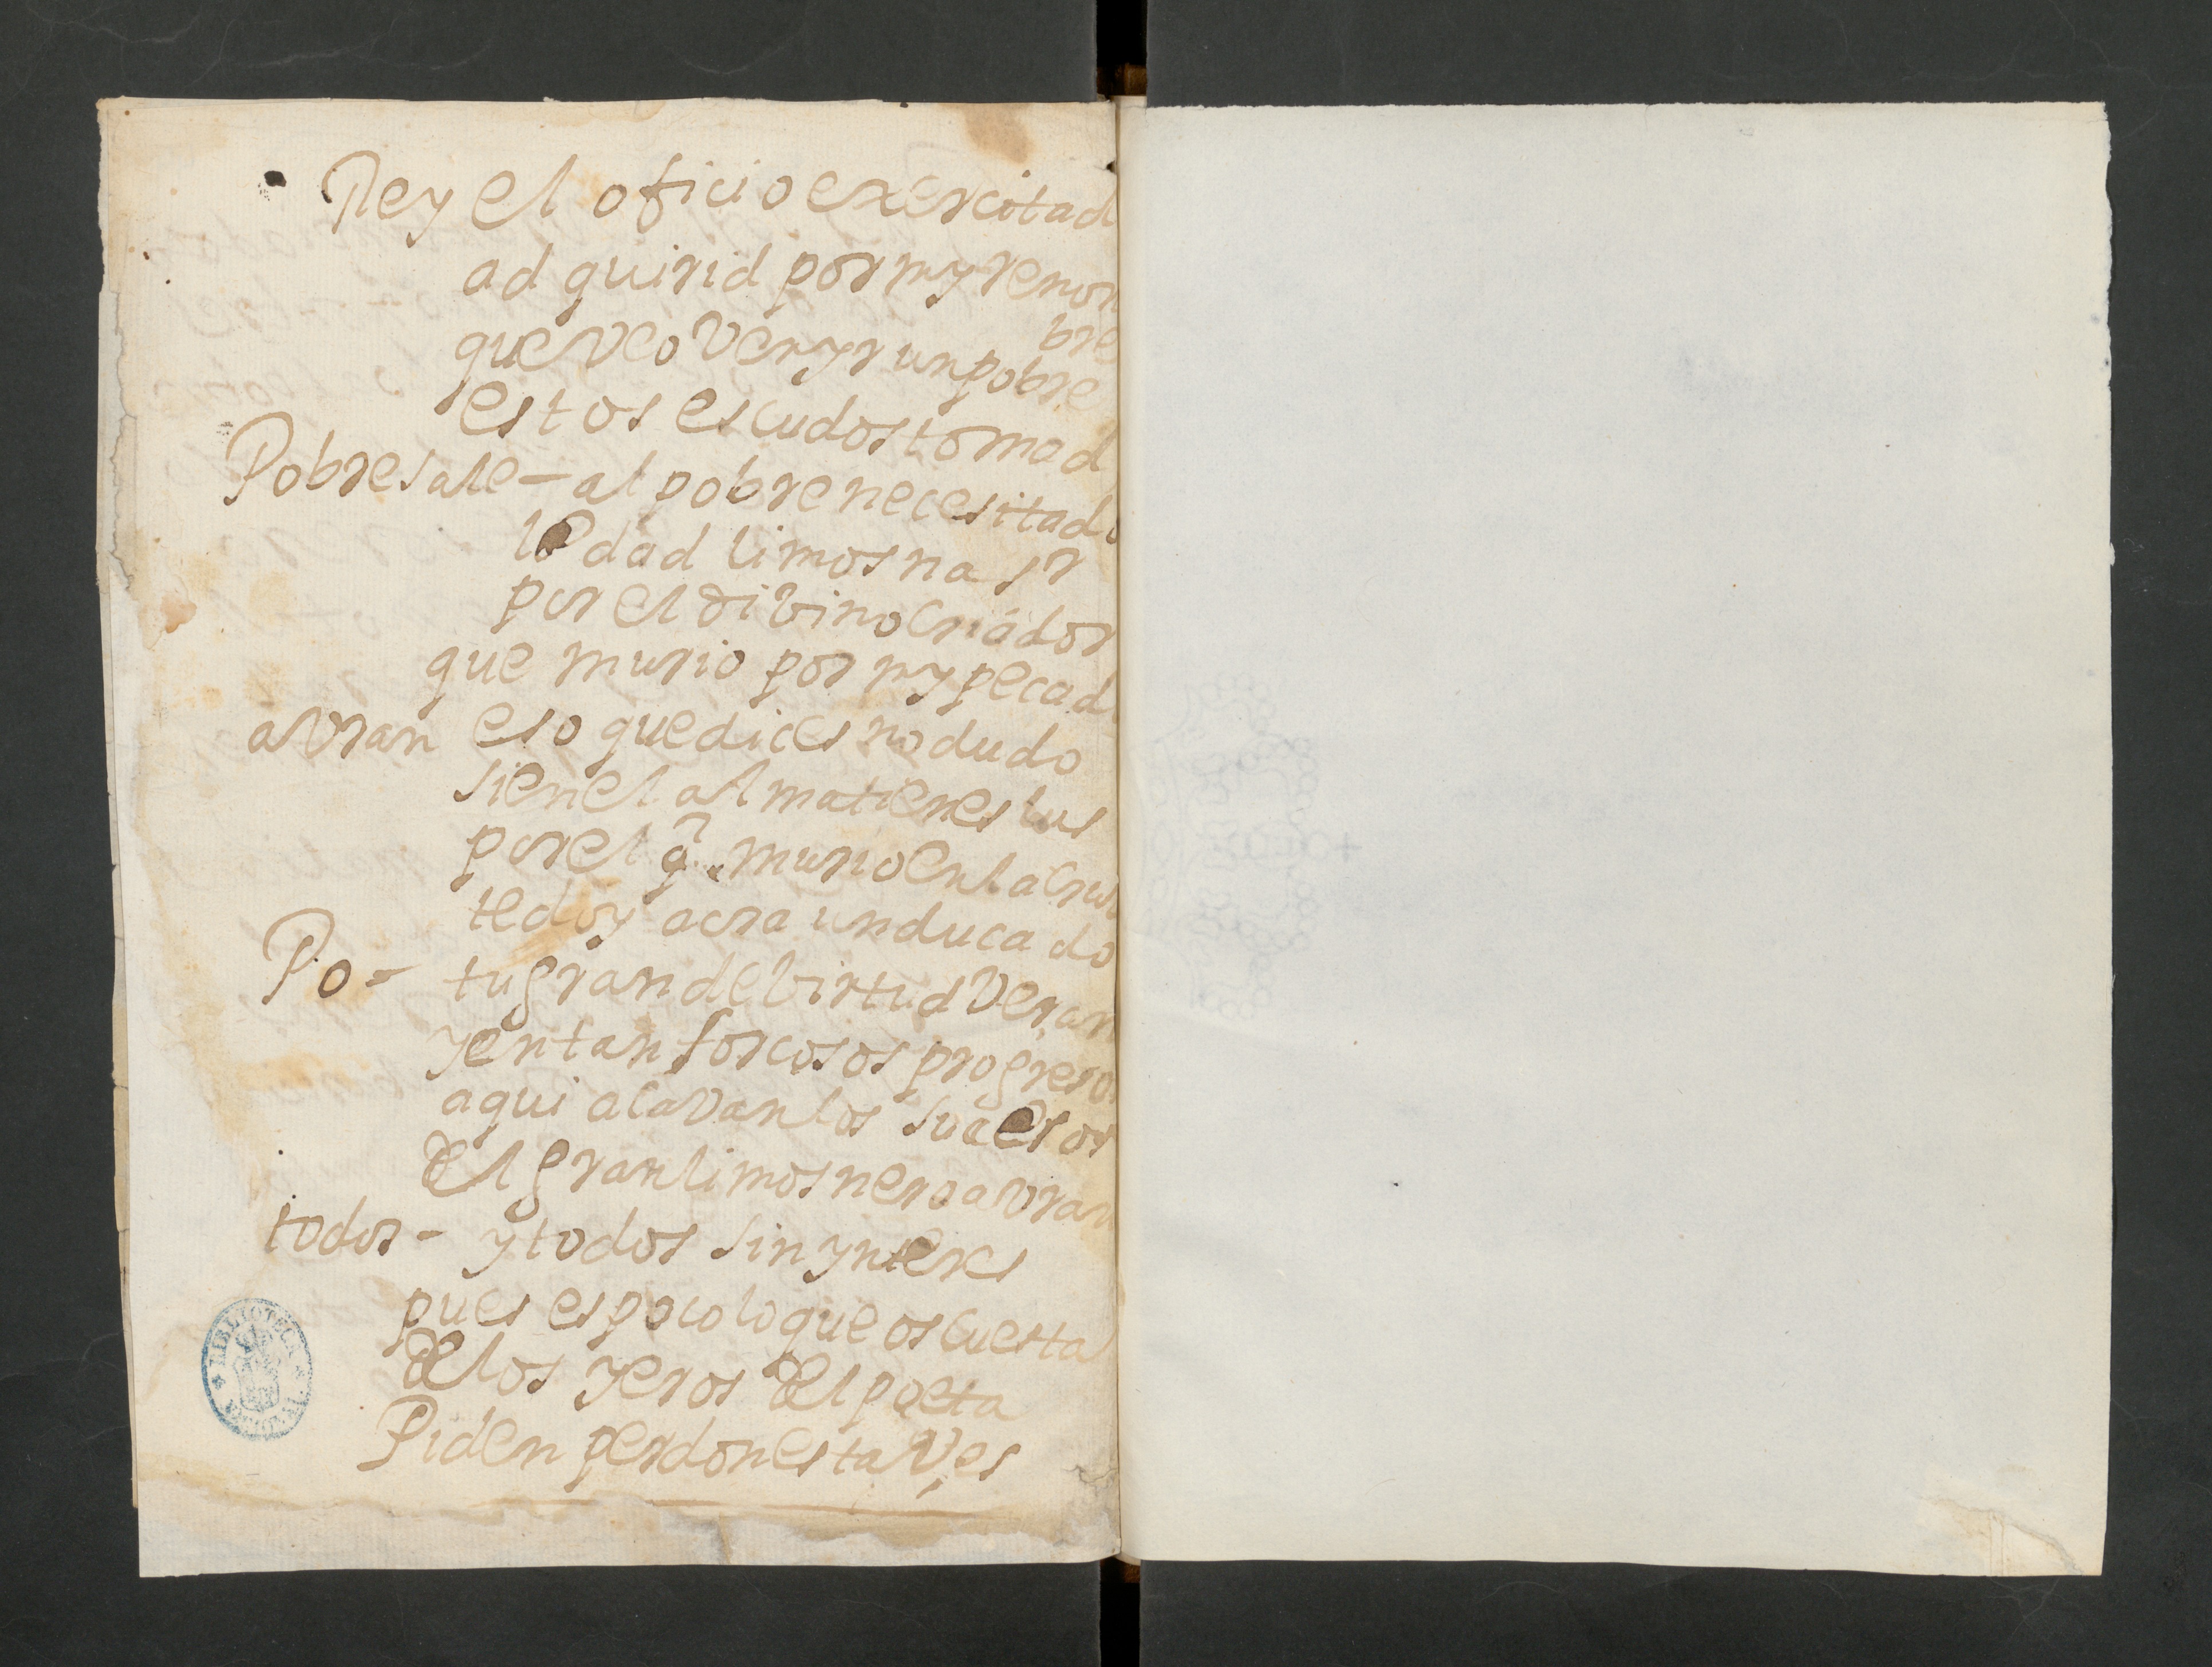 Rey el oficio exercitad
adquirid por my renom
bre
que veo venyr un pobre
estos escudos tomad
Pobre sale - al pobre necesitado
le dad limosna sr
por el dibino criador
que murio por my pecado
avran eso que dices no dudo
si en el alma tienes lus
por el q murio en la crus
te doy aora un ducado
Po - tu grande birtud veran
y en tan forcosos progresos
aqui acavan los sucesos
del gran limosnero avran
todos - y todos sin ynteres
pues es poco lo que os cuesta
de los yeros del poeta
Piden perdon esta ves
BIBLIOTECA